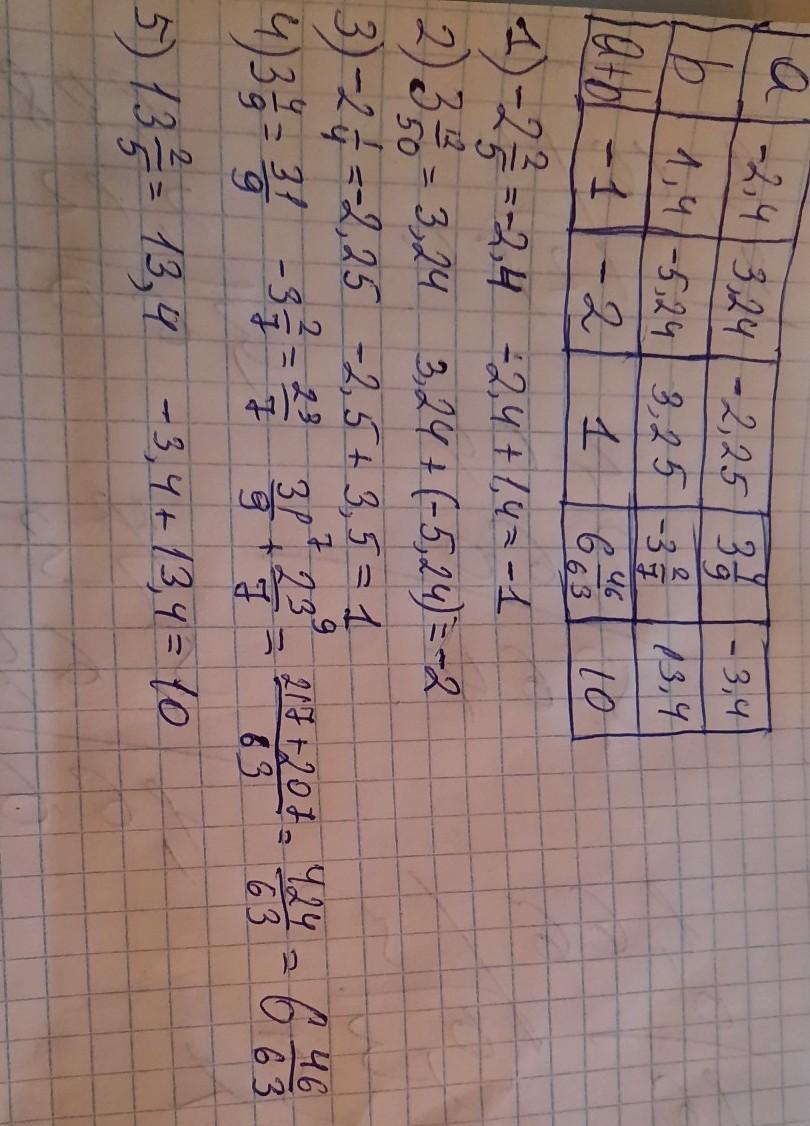 a -2,4 3,24 -2,25 3 4/9 -3,4
b 1,4 -5,24 3,25 -3 2/7 13,4
a+b -1 -2 1 6 46/63 10
1) -2 2/5 = -2,4 -2,4 + 1,4 = -1
2) 3 12/50 = 3,24 3,24 + (-5,24) = -2
3) -2 1/4 = -2,25 -2,5 + 3,5 = 1
4) 3 4/9 = 31/9 -3 2/7 = 23/7 31/9 ⁷ + 23/7 ⁹ = 217+207/63 = 424/63 = 6 46/63
5) 13 2/5 = 13,4 -3,4 + 13,4 = 10